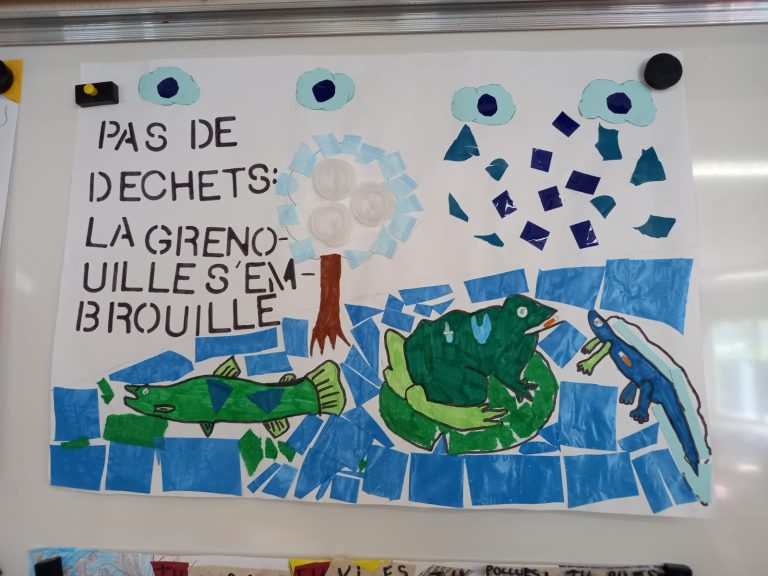 PAS DE
DECHETS:
LA GRENO-
UILLE S'EM-
BROUILLE